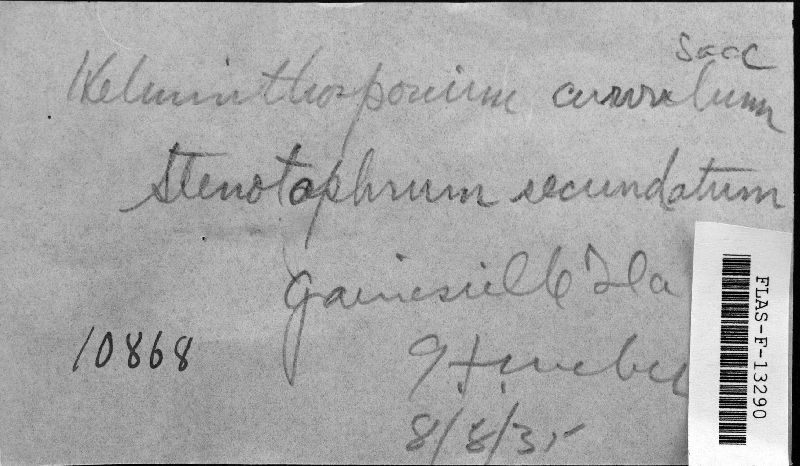 Sacc
Helminthosporium curvulum
Stenotaphrum secundatum
Gainesville Fla
10868
G F Weber
8/8/35
FLAS-F-13290